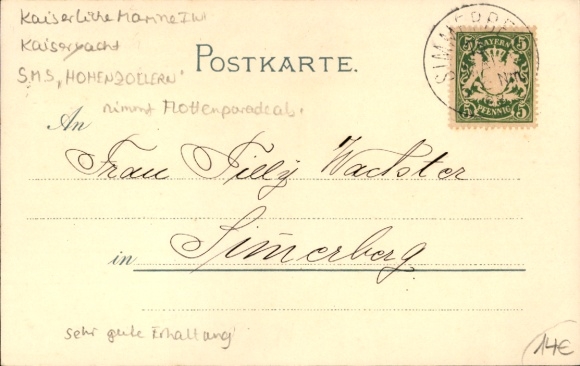 Kaiserliche Marine I.W.
Kaiseryacht
S.M.S. „HOHENZOLLERN"
nimmt Flottenparade ab.
POSTKARTE.
SIMMERBE
BAYERN
5 5
5 5
PFENNIG
An
Frau Filly Wachter
in Simerberg
sehr gute Erhaltung
14€